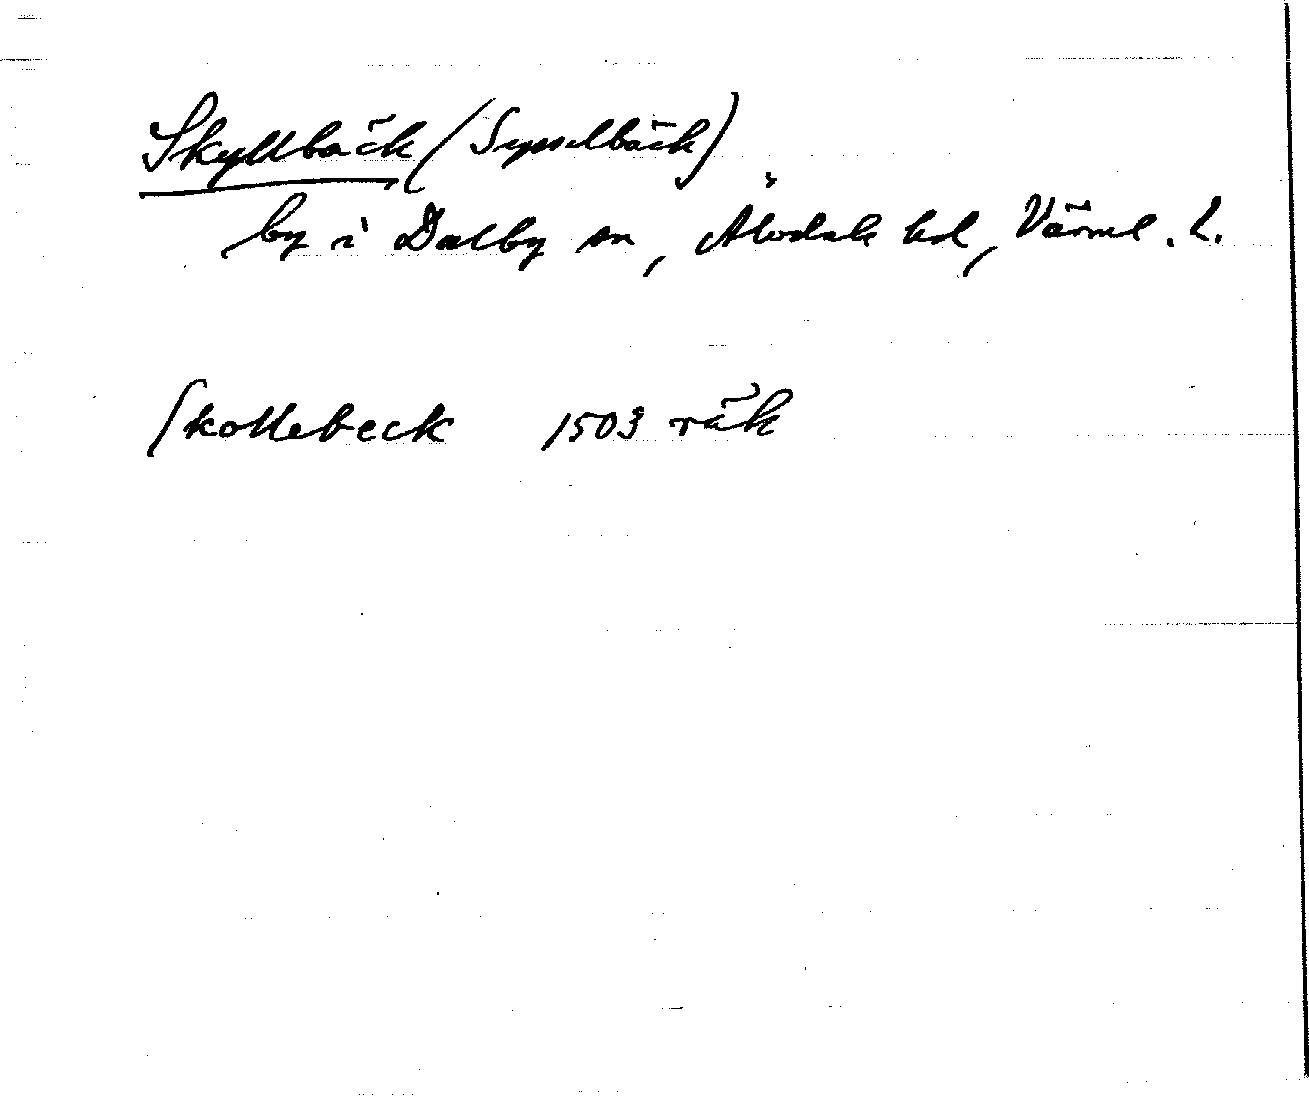 Skyllbäck (Sysselbäck)
by i Dalby sn, Älvdals hd, Värml. l.
Skollebeck 1503 räk